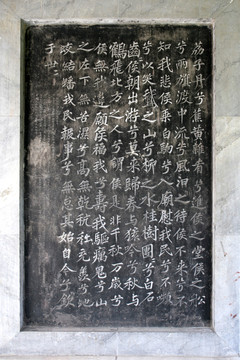 荔子丹兮蕉黃雜肴兮進侯之堂侯之船
兮兩旗渡中流兮風泊之待侯不來兮不
知我悲侯乘白駒兮入廟慰我民兮不嚬
兮以笑鵝之山兮柳之水桂樹團團兮白石
齒齒侯朝出游兮莫來歸春与猨吟兮秋与
鶴飛北方之人兮謂侯是非千秋万歲兮
侯無我違願侯福我兮壽我驅厲鬼兮山
之左下無苦濕兮高無乾秔稌充羨兮虵
蛟結蟠我民報事兮無怠其始自今兮欽
于世世